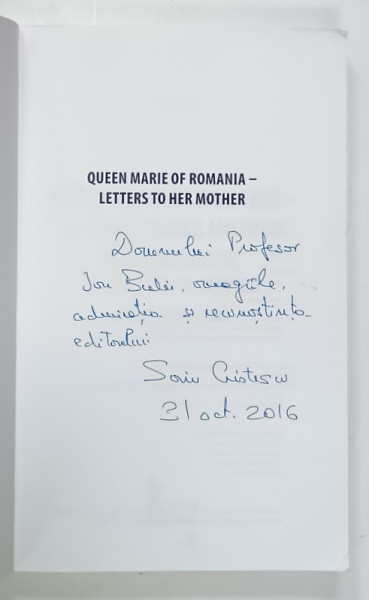 QUEEN MARIE OF ROMANIA –
LETTERS TO HER MOTHER
Domnului Profesor
Ion Bulei, omagiile,
admirația și recunoștința
editorului
Sorin Cristescu
31 oct. 2016